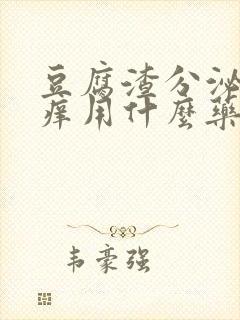 豆腐渣分泌
痒用什麼藥
韦豪强